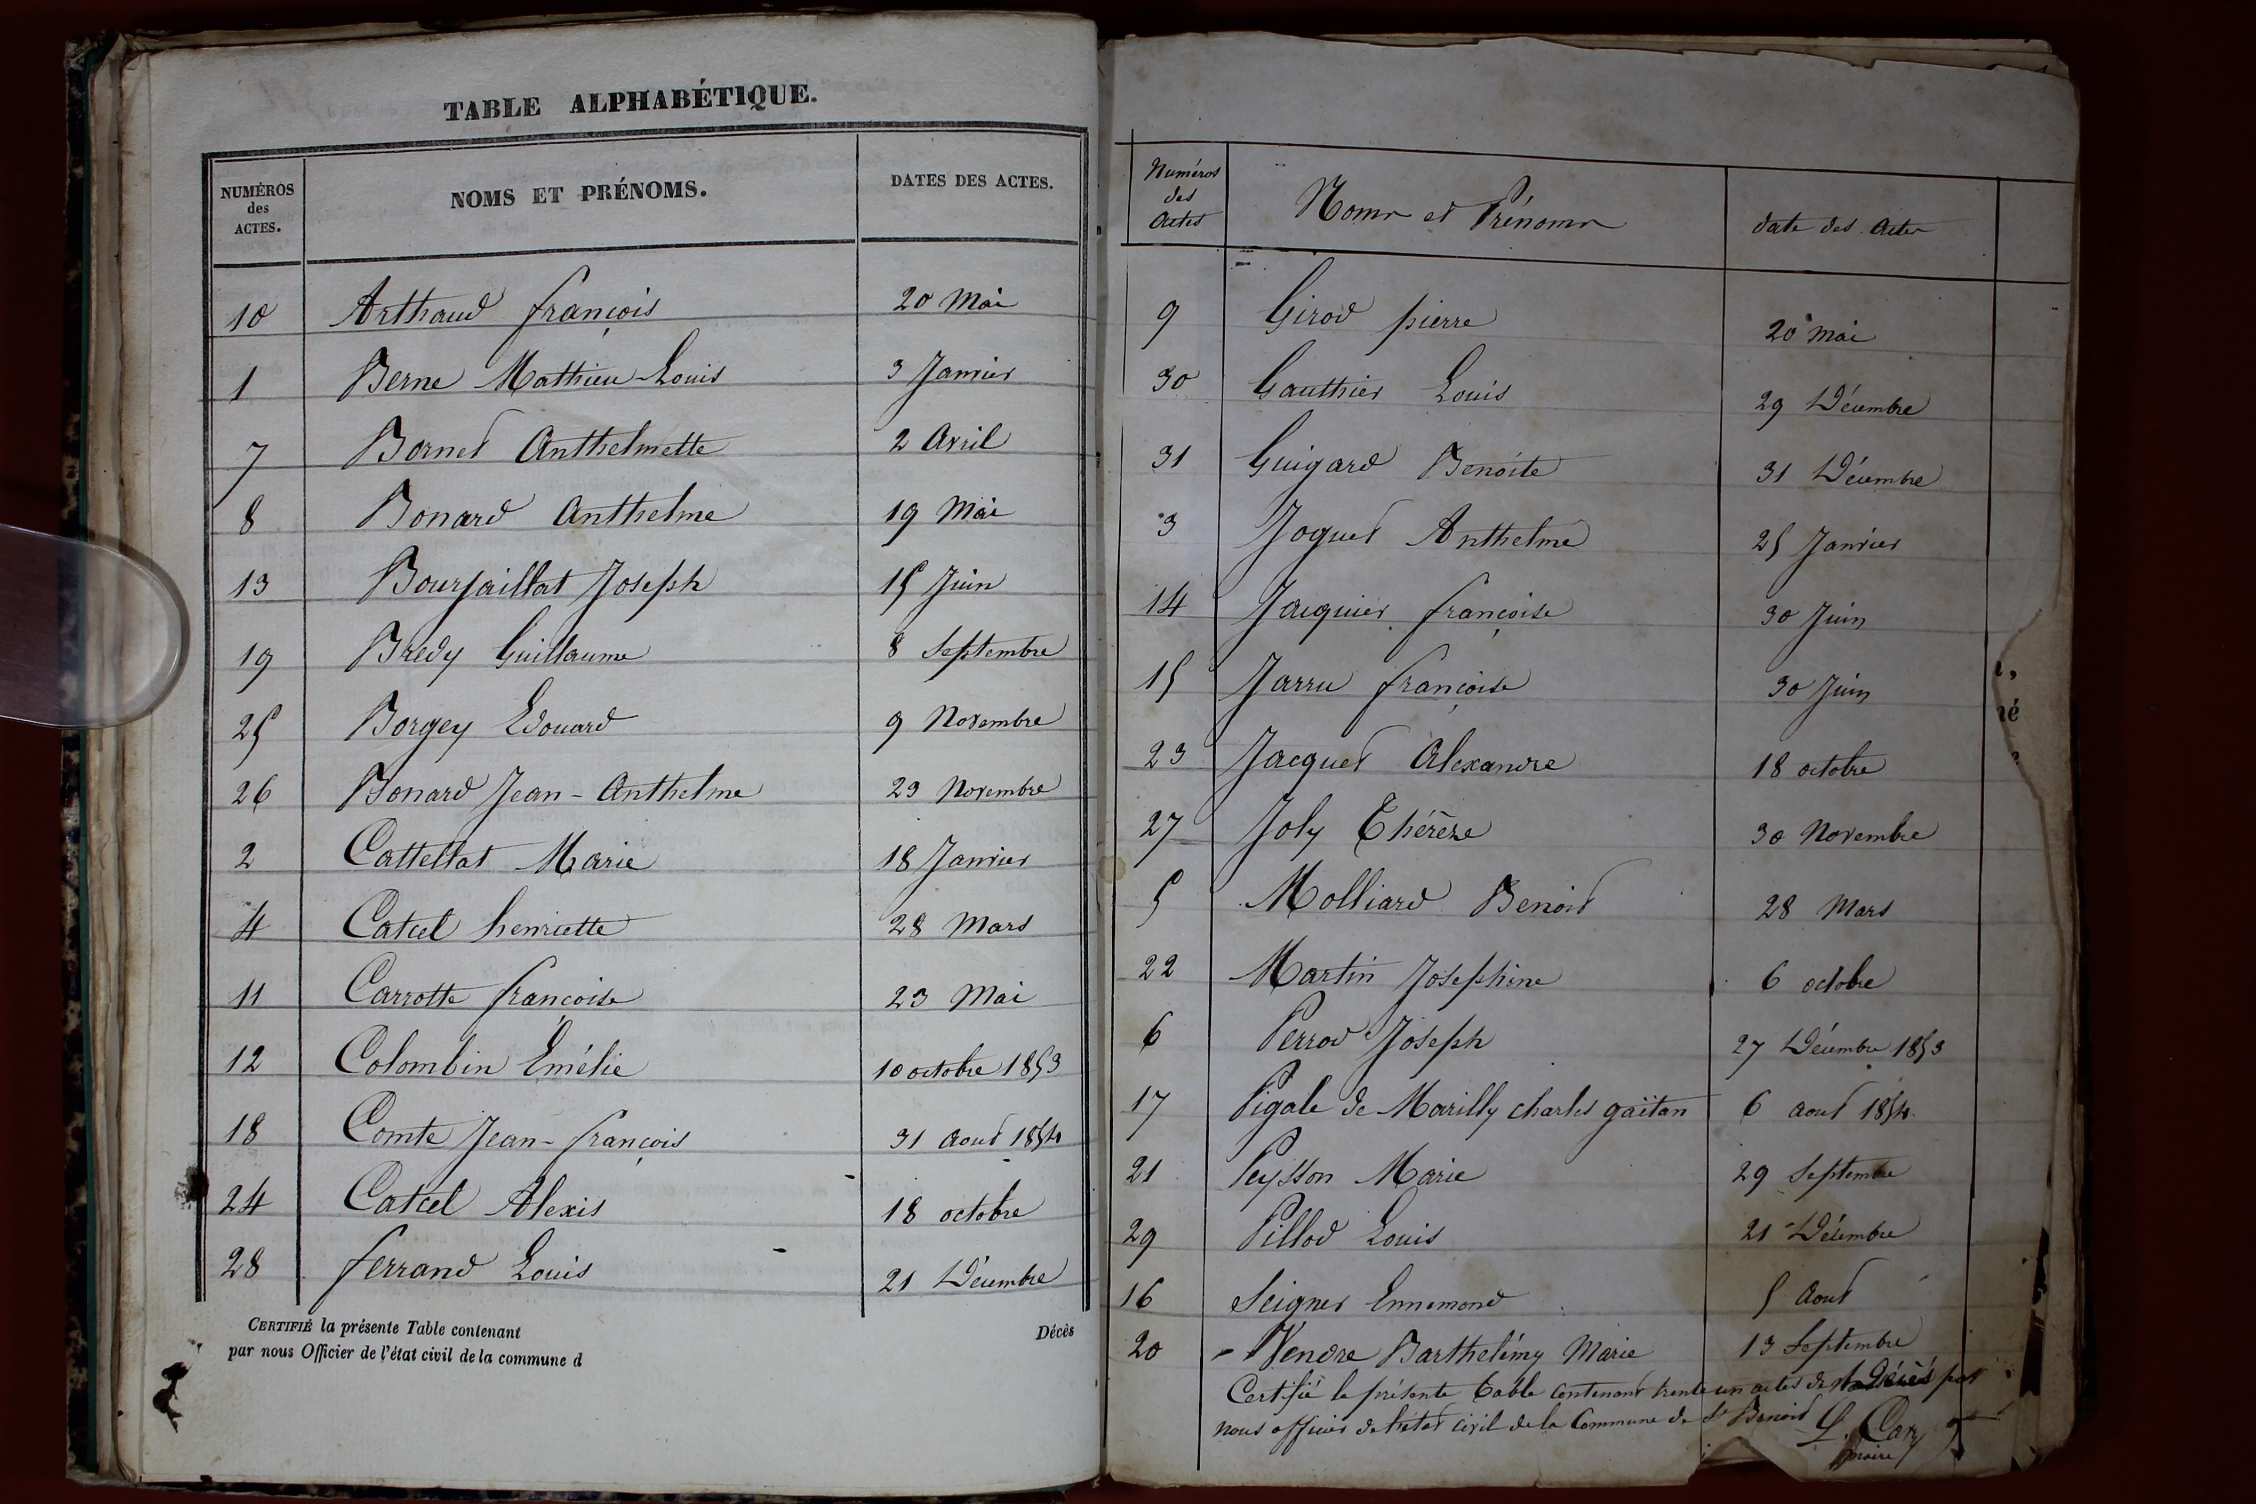 TABLE ALPHABÉTIQUE.
NUMÉROS
des
ACTES.
NOMS ET PRÉNOMS.
DATES DES ACTES.
10 Arthaud françois 20 Mai
1 Berne Mathieu-Louis 3 Janvier
7 Bornet Anthelmette 2 Avril
8 Bonard Anthelme 19 Mai
13 Bourjaillat Joseph 15 Juin
19 Bredy Guillaume 8 Septembre
25 Borgey Edouard 9 Novembre
26 Bonard Jean-Anthelme 23 Novembre
2 Cattellat Marie 18 Janvier
4 Catcel henriette 28 Mars
11 Carrotte françoise 23 Mai
12 Colombin Emélie 10 octobre 1853
18 Comte Jean-françois 31 aout 1854
24 Catcel Alexis 18 octobre
28 ferrand Louis 21 Décembre
CERTIFIÉ la présente Table contenant Décès
par nous Officier de l'état civil de la commune d
Numéros
des
Actes
Noms et Prénoms
date des Actes
9 Girod pierre 20 mai
30 Gauthier Louis 29 Décembre
31 Guigard Benoite 31 Décembre
3 Joguet Anthelme 25 Janvier
14 Jacquier françoise 30 Juin
15 Jarru françoise 30 Juin
23 Jacquet Alexandre 18 octobre
27 Joly Thérèze 30 Novembre
5 Molliard Benoit 28 Mars
22 Martin Josephine 6 octobre
6 Perrod Joseph 27 Décembre 1853
17 Pigale de Marilly charles gaëtan 6 aout 1854
21 Peysson Marie 29 Septembre
29 Pillod Louis 21 Décembre
16 Seigner Ennemond 5 Aout
20 - Vendre Barthelémy Marie 13 Septembre
Certifié la présente table contenant trente un actes de Décès par
nous officier de l'état civil de la Commune de St Benoit
maire